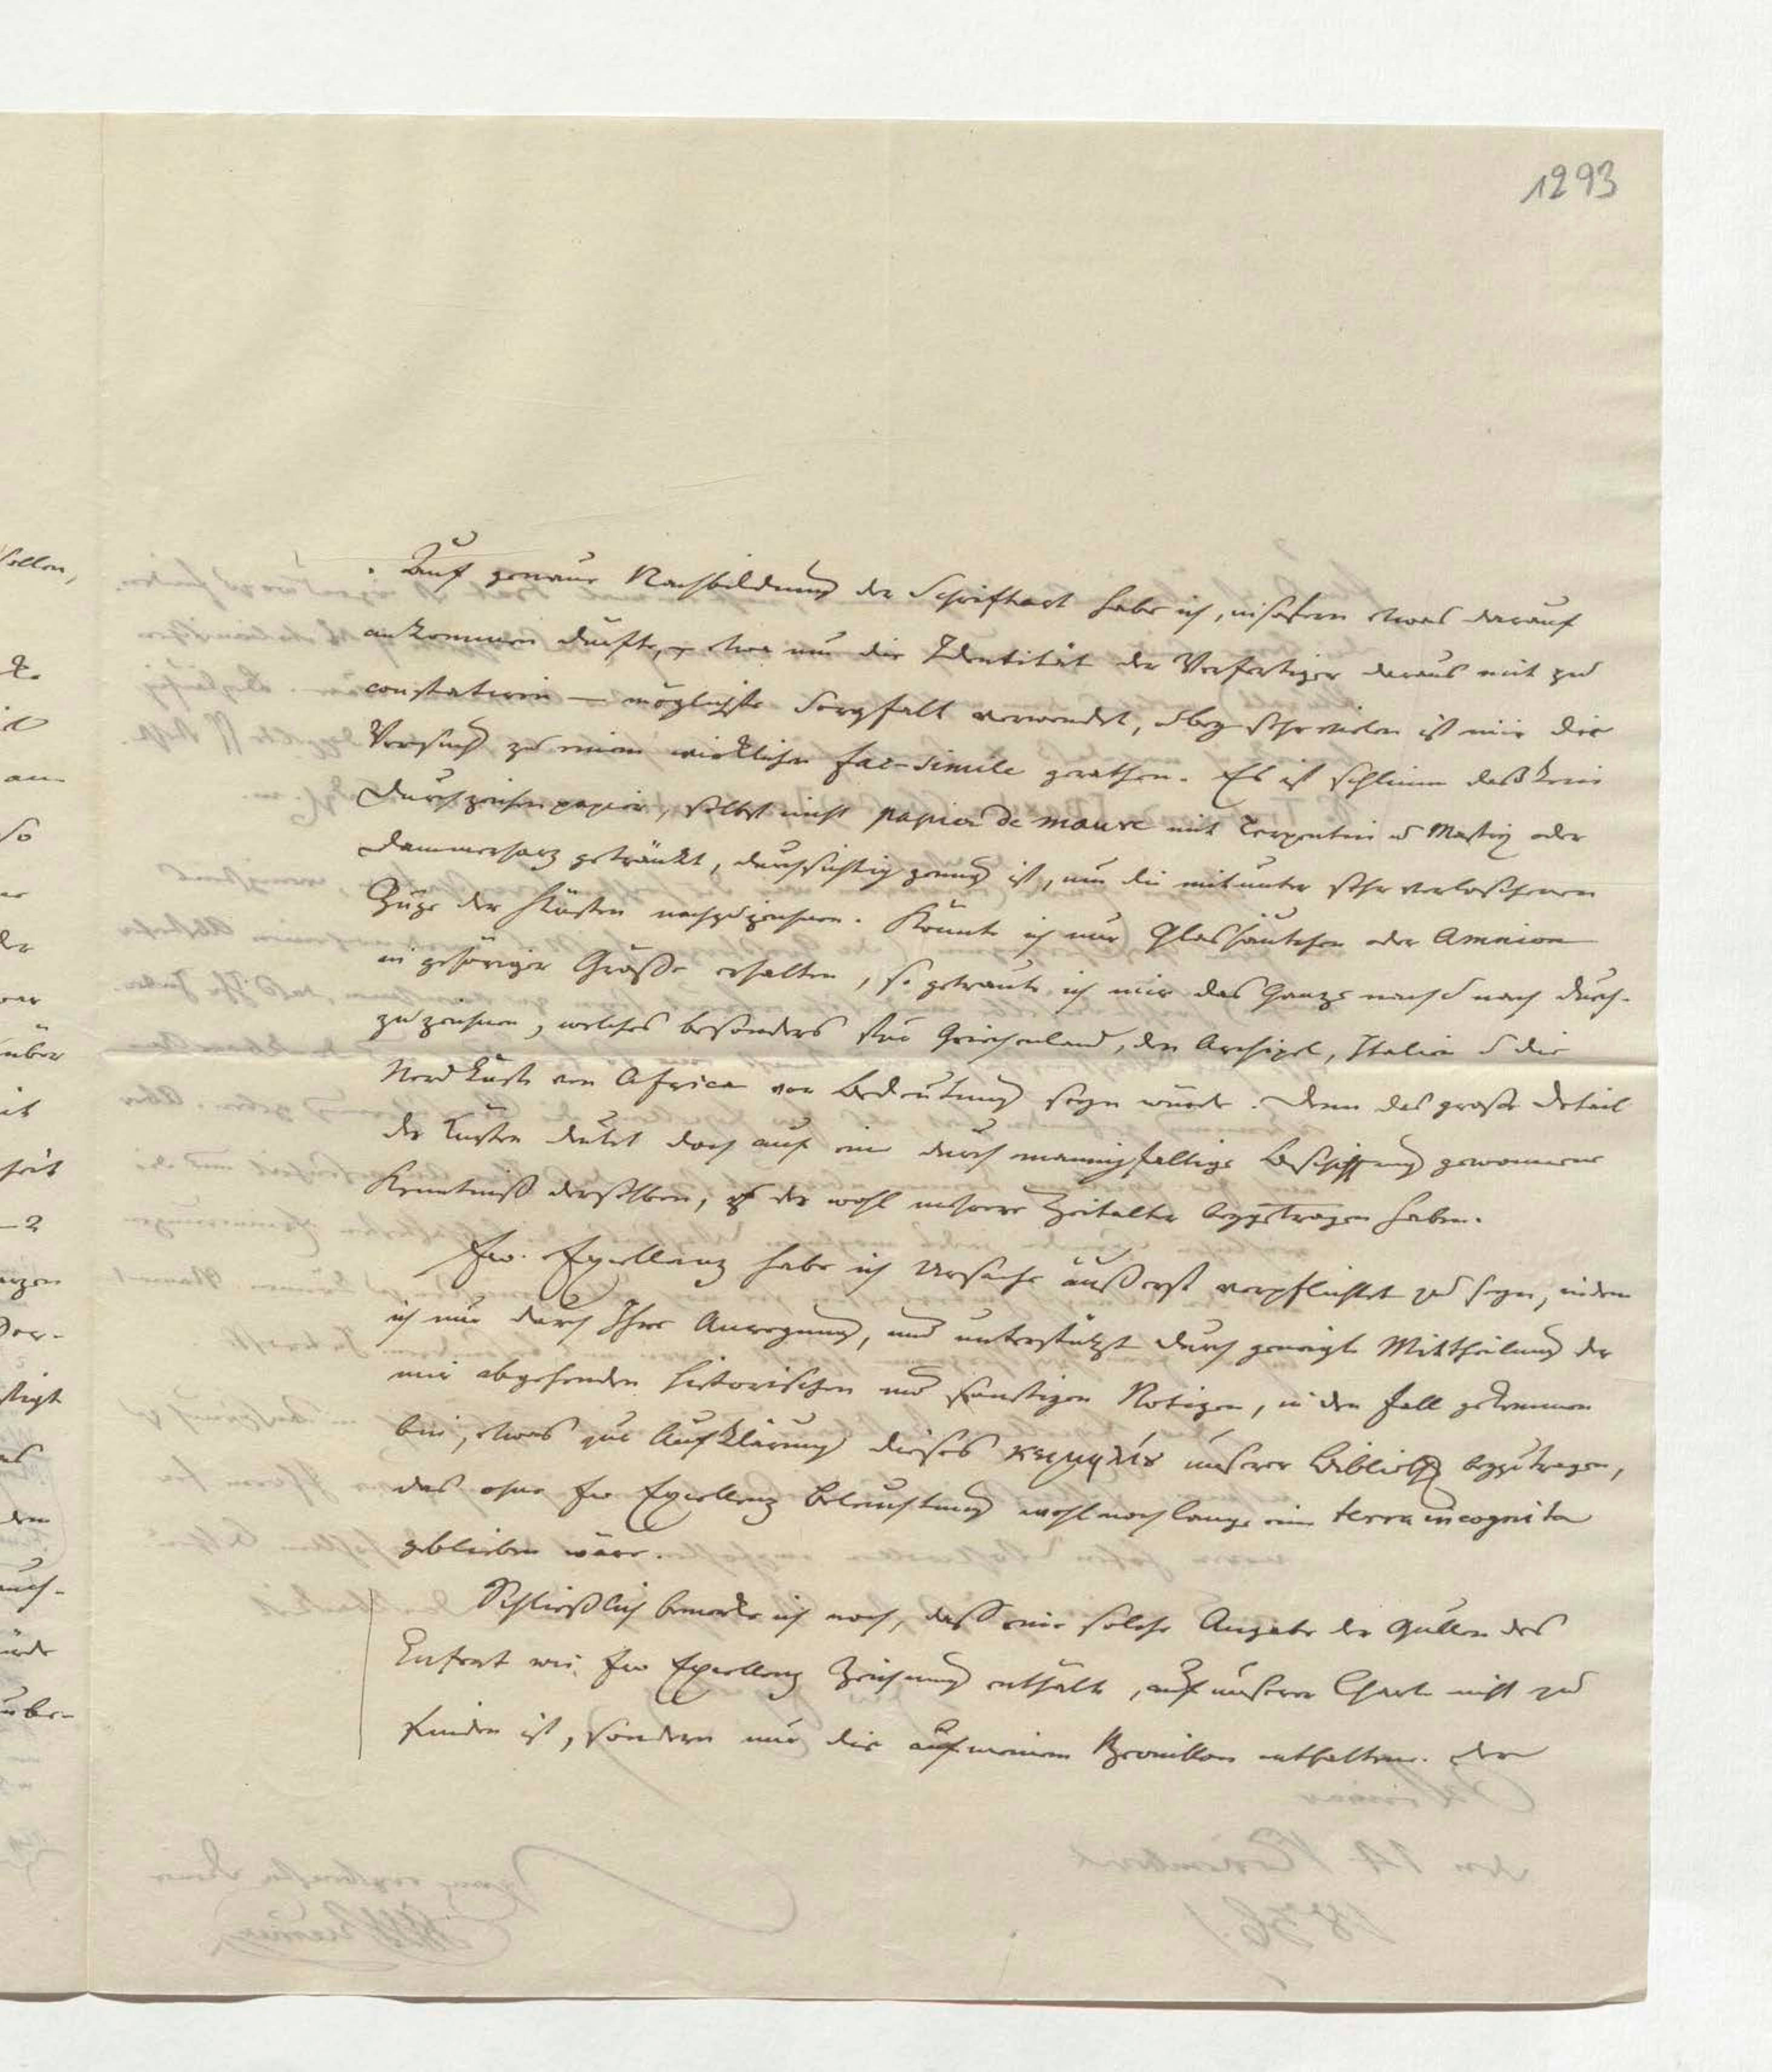 1293
Auf genaue Nachbildung der Schriftart habe ich, insofern etwas darauf
ankommen dürfte, etwa um die Identität der Verfertiger daraus mit zu
constatiren — möglichste Sorgfalt verwendet, bey sehr vielen ist mir der
Versuch zu einem wirklichen fac-simile gerathen. Es ist schlimm daß kein
Durchzeichenpapier, selbst nicht papier de mauve mit Terpentin u Mastix oder
Dammerharz getränkt, durchsichtig genug ist, um die mitunter sehr verloschenen
Züge der Küsten nachzuzeichnen. Könnte ich nur Glashäutchen oder Amnion
in gehöriger Größe erhalten, so getraute ich mir das Ganze nach u nach durch-
zuzeichnen, welches besonders für Griechenland, den Archipel, Italien u die
Nordküste von Africa von Bedeutung seyn würde. Denn das große Detail
der Küsten deutet doch auf eine durch mannigfaltige Beschiffung gewonnene
Kenntniß derselben, zu der wohl mehrere Zeitalter beygetragen haben.
Ew. Excellenz habe ich Ursache äußerst verpflichtet zu seyn, indem
ich nur durch Ihre Anregung, und unterstützt durch geneigte Mittheilung der
mir abgehenden historischen und sonstigen Notizen, in den Fall gekommen
bin, etwas zur Aufklärung dieses unserer Biblioth beyzutragen,
das ohne Ew Excellenz Beleuchtung wohl noch lange eine terra incognita
geblieben wäre.
Schließlich bemerke ich noch, daß eine solche Angabe der Quellen des
Eufrat wie Ew Excellenz Zeichnung enthält, auf unserer Charte nicht zu
finden ist, sondern nur die auf meinem Brouillon enthaltene. Der
sellen,
am
so
der
war
über
it
heit
-2
stigt
den
auch-
ürde
über-